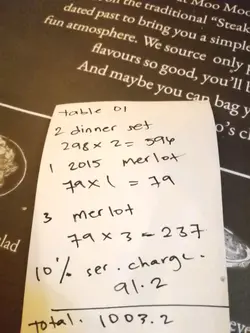 on the traditional "Steak
at Moo Moo
dated past to bring you a simple
fun atmosphere. We source only
flavours so good, you'll
And maybe you can bag
o's
table 01
2 dinner set
298 x 2 = 596
1 2015 merlot
79 x 1 = 79
3 merlot
79 x 3 = 237
10% ser. charge.
91.2
total. 1003.2
lad